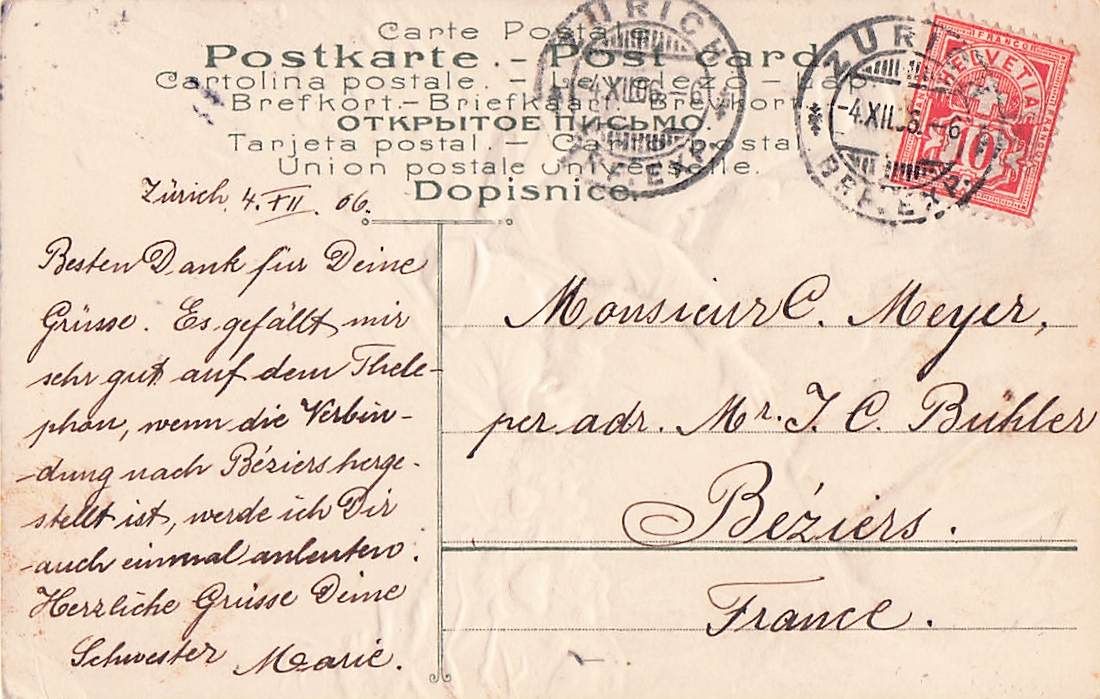 Carte Postale
Postkarte. - Post card
Cartolina postale. - Levelező-Lap.
Brefkort. - Briefkaart. - Brevkort.
ОТКРЫТОЕ ПИСЬМО.
Tarjeta postal. - Cartão postal.
Union postale universelle.
Dopisnice.
ZÜRICH
-4.XII.06.-6
BRF. EXP.
ZÜRICH
-4.XII.06.-6
BRF. EXP.
FRANCO
HELVETIA
10
Zürich, 4. XII. 06.
Besten Dank für Deine
Grüsse. Es gefällt mir
sehr gut auf dem Thele-
phon, wenn die Verbin-
-dung nach Béziers herge-
stellt ist, werde ich Dir
auch einmal anleuten.
Herzliche Grüsse Deine
Schwester Marie.
Monsieur C. Meyer,
per adr. Mr. J. C. Bühler
Béziers.
France.